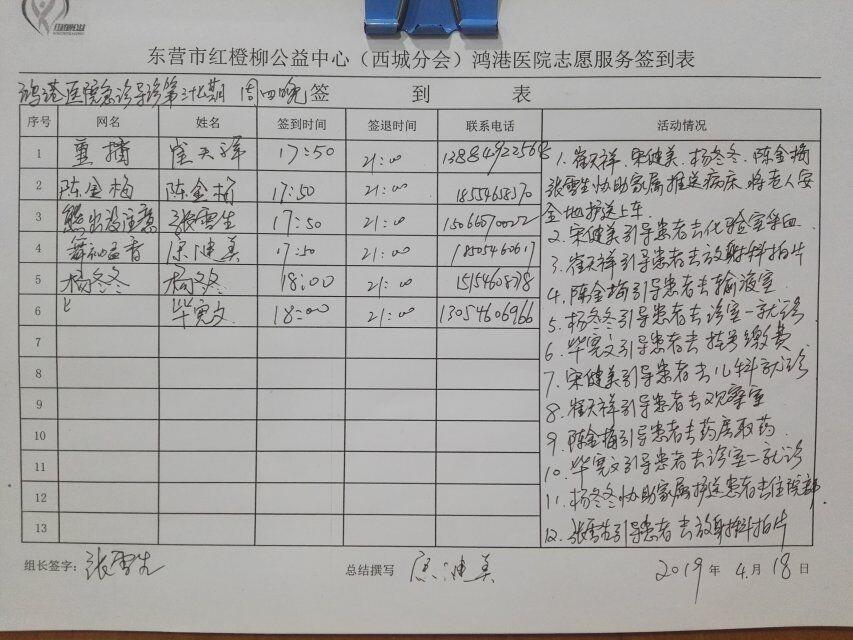 东营市红橙柳公益中心（西城分会）鸿港医院志愿服务签到表
鸿港医院急诊导诊第三十七期 周四晚签 到 表
序号 网名 姓名 签到时间 签退时间 联系电话 活动情况
1 重播 崔天祥 17:50 21:00
2 陈金梅 陈金梅 17:50 21:00
3 熊出没注意 张雪生 17:50 21:00
4 宋健美 17:50 21:00 18505460617
5 杨冬冬 杨冬冬 18:00 21:00
6 毕宪文 18:00 21:00 13054606966
7
8
9
10
11
12
13
1、崔天祥、宋健美、杨冬冬、陈金梅
张雪生协助家属推送病床，将老人安
全地护送上车.
2、宋健美引导患者去化验室采血
3、崔天祥引导患者去放射科拍片
4、陈金梅引导患者去输液室
5、杨冬冬引导患者去诊室一就诊
6、毕宪文引导患者去挂号缴费
7、宋健美引导患者去儿科就诊
8、崔天祥引导患者去观察室
9、陈金梅引导患者去药房取药
10、毕宪文引导患者去诊室二就诊
11、杨冬冬协助家属护送患者去住院部
12、张雪生引导患者去放射科拍片
组长签字：张雪生 总结撰写 宋健美 2019年4月18日